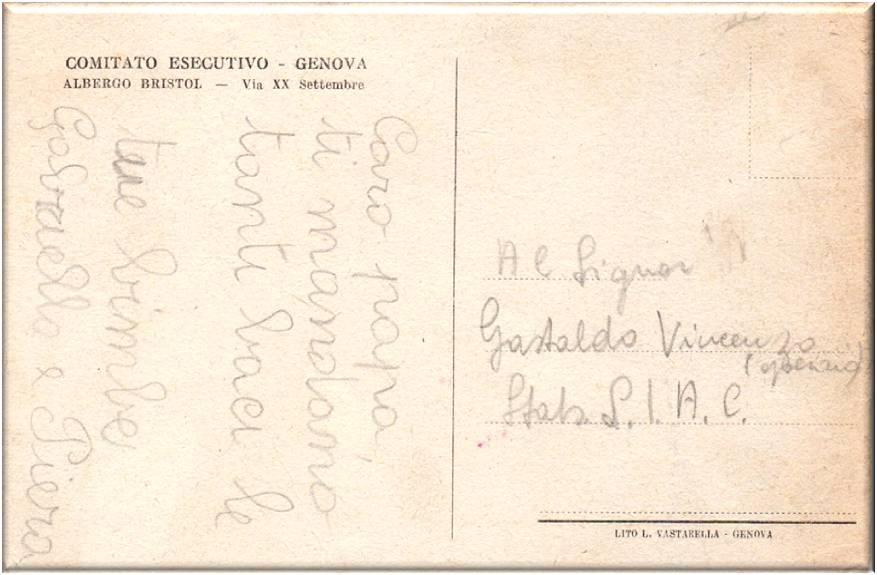 COMITATO ESECUTIVO - GENOVA
ALBERGO BRISTOL — Via XX Settembre
Caro papà,
ti mandano
tanti baci le
tue bimbe
Gabriella e Piera
Al Signor
Gastaldo Vincenzo
(operaio)
Stab. S.I.A.C.
LITO L. VASTARELLA - GENOVA